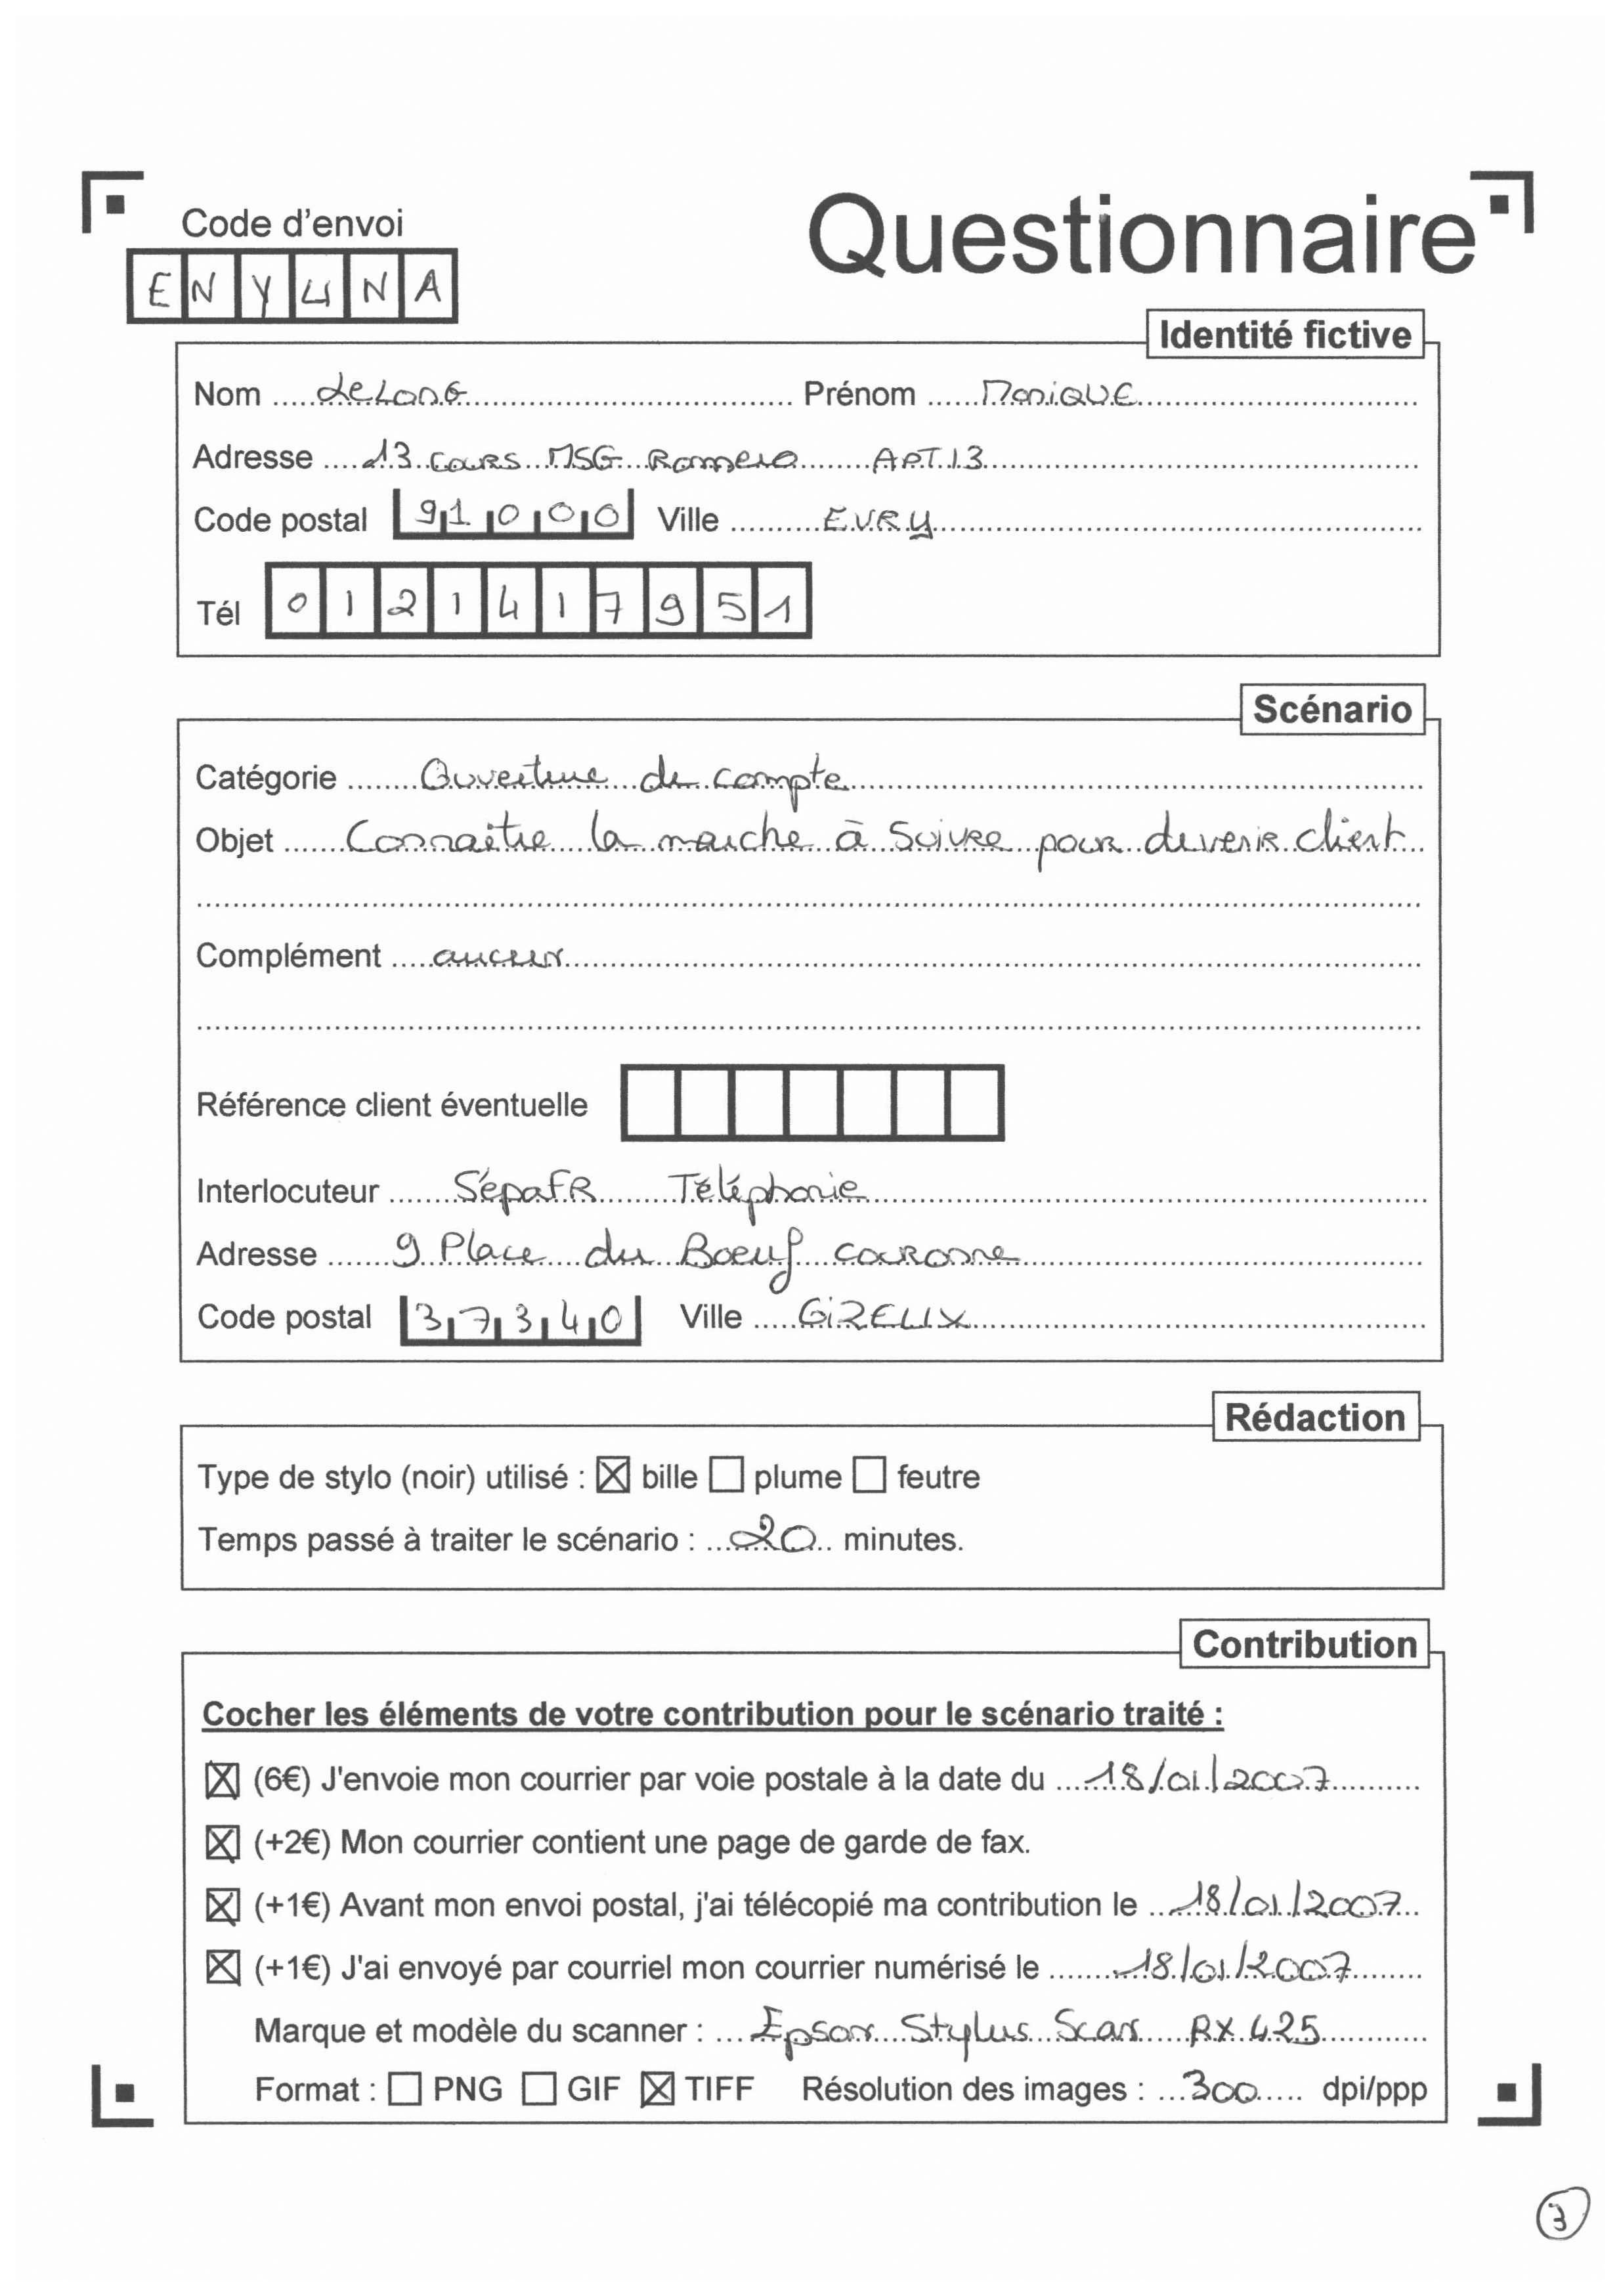 Code d'envoi
Questionnaire
E N Y U N A
Identité fictive
Nom LeLONG Prénom MoniQUE
Adresse 13 COURS MSG Romero APT 13
Code postal 91000 Ville EVRY
Tél 0121417951
Scénario
Catégorie Ouverture de compte
Objet Connaitre la marche à Suivre pour devenir client
Complément aucun
Référence client éventuelle
Interlocuteur SépaFR Téléphonie
Adresse 9 Place du Boeuf couronne
Code postal 37340 Ville GiZEUX
Rédaction
Type de stylo (noir) utilisé : ☒ bille ☐ plume ☐ feutre
Temps passé à traiter le scénario : 20 minutes.
Contribution
Cocher les éléments de votre contribution pour le scénario traité :
☒ (6€) J'envoie mon courrier par voie postale à la date du 18/01/2007
☒ (+2€) Mon courrier contient une page de garde de fax.
☒ (+1€) Avant mon envoi postal, j'ai télécopié ma contribution le 18/01/2007
☒ (+1€) J'ai envoyé par courriel mon courrier numérisé le 18/01/2007
Marque et modèle du scanner : Epson Stylus Scan RX 425
Format : ☐ PNG ☐ GIF ☒ TIFF Résolution des images : 300 dpi/ppp
3